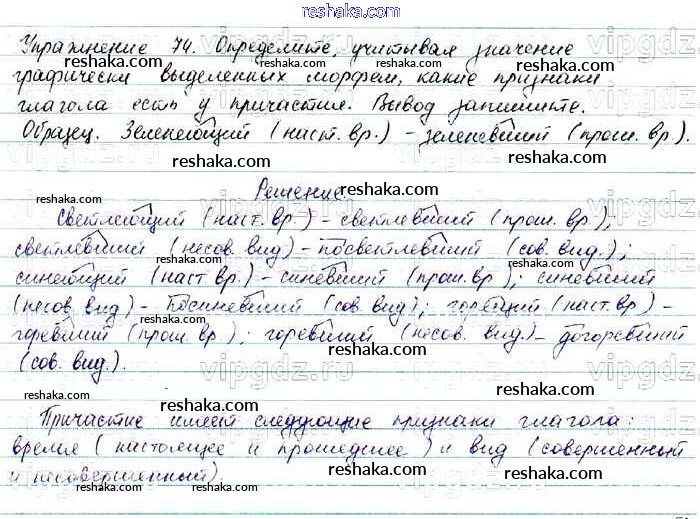 reshaka.com
Упражнение 74. Определите, учитывая значение
графически выделенных морфем, какие признаки
глагола есть у причастия. Вывод запишите.
Образец. Зеленеющий (наст. вр.) – зеленевший (прош. вр.).
Решение.
Светлеющий (наст. вр.) – светлевший (прош. вр.);
светлевший (несов. вид) – посветлевший (сов. вид.);
синеющий (наст вр.) – синевший (прош. вр); синевший
(несов. вид) – посиневший (сов. вид); горящий (наст. вр) –
горевший (прош. вр); горевший (несов. вид.) – догоревший
(сов. вид.).
Причастие имеет следующие признаки глагола:
время (настоящее и прошедшее) и вид (совершенный
и несовершенный).